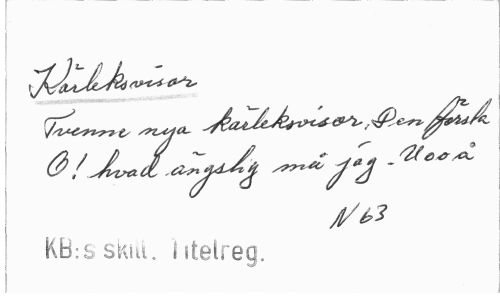 Kärleksvisor
Tvenne nya kärleksvisor, Den första
O! hvad ängslig må jag - U o o å
N 63
KB:s skill. Titelreg.